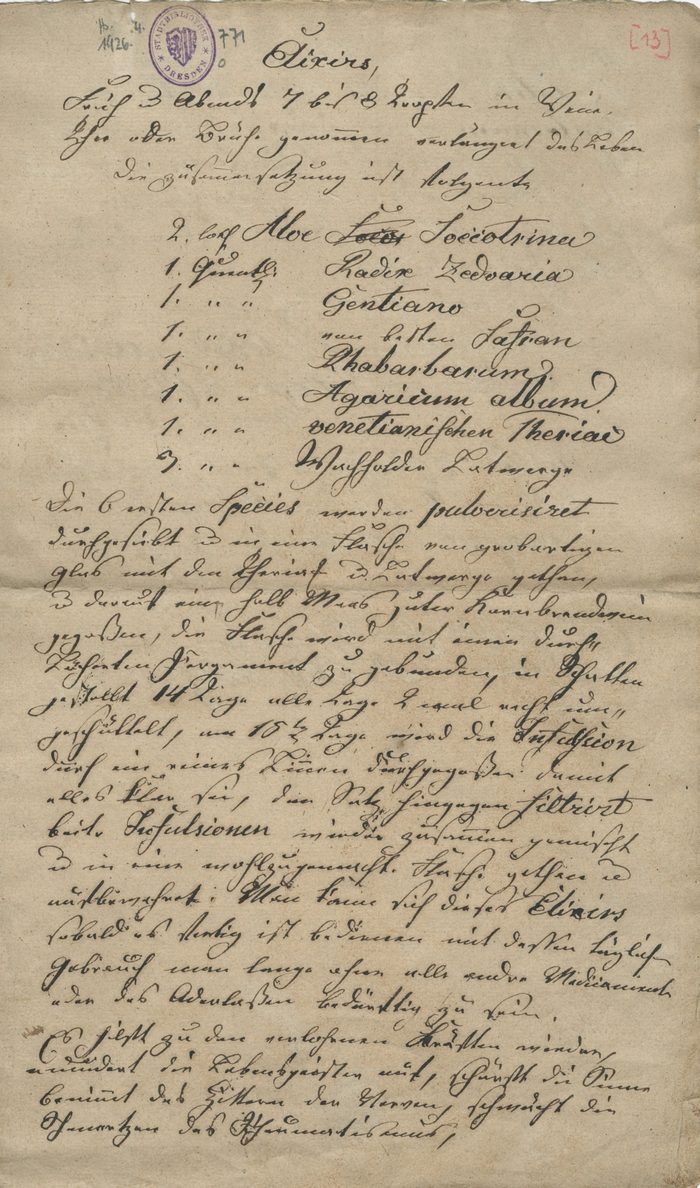 Ab. 4.
1426.
STADTBIBLIOTHEK DRESDEN
771
0
[13]
Elixirs,
Früh u Abends 7 bis 8 Tropfen in Wein,
Thee oder Brühe genommen verlängert das Leben
Die zusammensetzung ist folgente
2. loth Aloe Soccotrina
1. Quentl: Radix Zedoaria
1. " " Gentiano
1. " " vom besten Safran
1. " " Rhabarbarum
1. " " Agaricum album
1. " " venetianischen Theriac
3. " " Wachholder Latwerge
Die 6 ersten Species werden pulverisiret
durchgesiebt u in eine Flasche von grobartigen
glas mit den Theriak u Latwerge gethan,
u darauf ein halb Maas guter Kornbrandwein
gegoßen, die Flasche wird mit einen durch"
löcherten Pergament zu gebunden, in Schatten
gestellt 14 Tage alle Tage 2 mal recht um"
geschüttelt, am 15ten Tage wird die Infusion
durch ein reines Linnen durchgegoßen damit
alles klar sei, den Satz hingegen filtrirt
beite Infulsionen wieder zusammen gemischt
u in eine wohlzugemacht. Flasche gethan u
aufbewahret. Man kann sich dieses Elixirs
sobald es fertig ist bedienen mit dessen täglich
Gebrauch man lange ohne alle andre Medicament
oder des Aderlaßen bedürftig zu sein.
Es hilft zu den verlohrnen Kräften wieder,
mundert die Lebensgeister auf, schärft die Sinne
benimmt das Zittern der Nerven, schwächt die
Schmertzen des Rheumatismus,